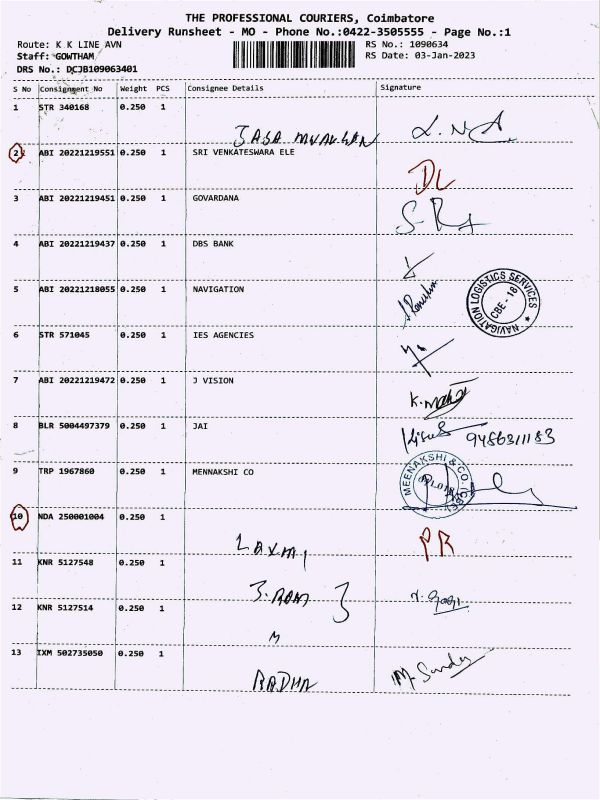 THE PROFESSIONAL COURIERS, Coimbatore
Delivery Runsheet - MO - Phone No.:0422-3505555 - Page No.:1
Route: K K LINE AVN RS No.: 1090634
Staff: GOWTHAM RS Date: 03-Jan-2023
DRS No.: DCJB109063401
S No Consignment No Weight PCS Consignee Details Signature
1 STR 340168 0.250 1
2 ABI 20221219551 0.250 1 SRI VENKATESWARA ELE
DL
3 ABI 20221219451 0.250 1 GOVARDANA
4 ABI 20221219437 0.250 1 DBS BANK
5 ABI 20221218055 0.250 1 NAVIGATION
NAVIGATION LOGISTICS SERVICES
CBE - 18
6 STR 571045 0.250 1 IES AGENCIES
7 ABI 20221219472 0.250 1 J VISION
8 BLR 5004497379 0.250 1 JAI
9486311183
9 TRP 1967860 0.250 1 MENNAKSHI CO
MEENAKSHI & CO.
10 NDA 250001004 0.250 1
LAXMI PR
11 KNR 5127548 0.250 1
J. RAM
12 KNR 5127514 0.250 1
M
13 IXM 502735050 0.250 1
RADHA